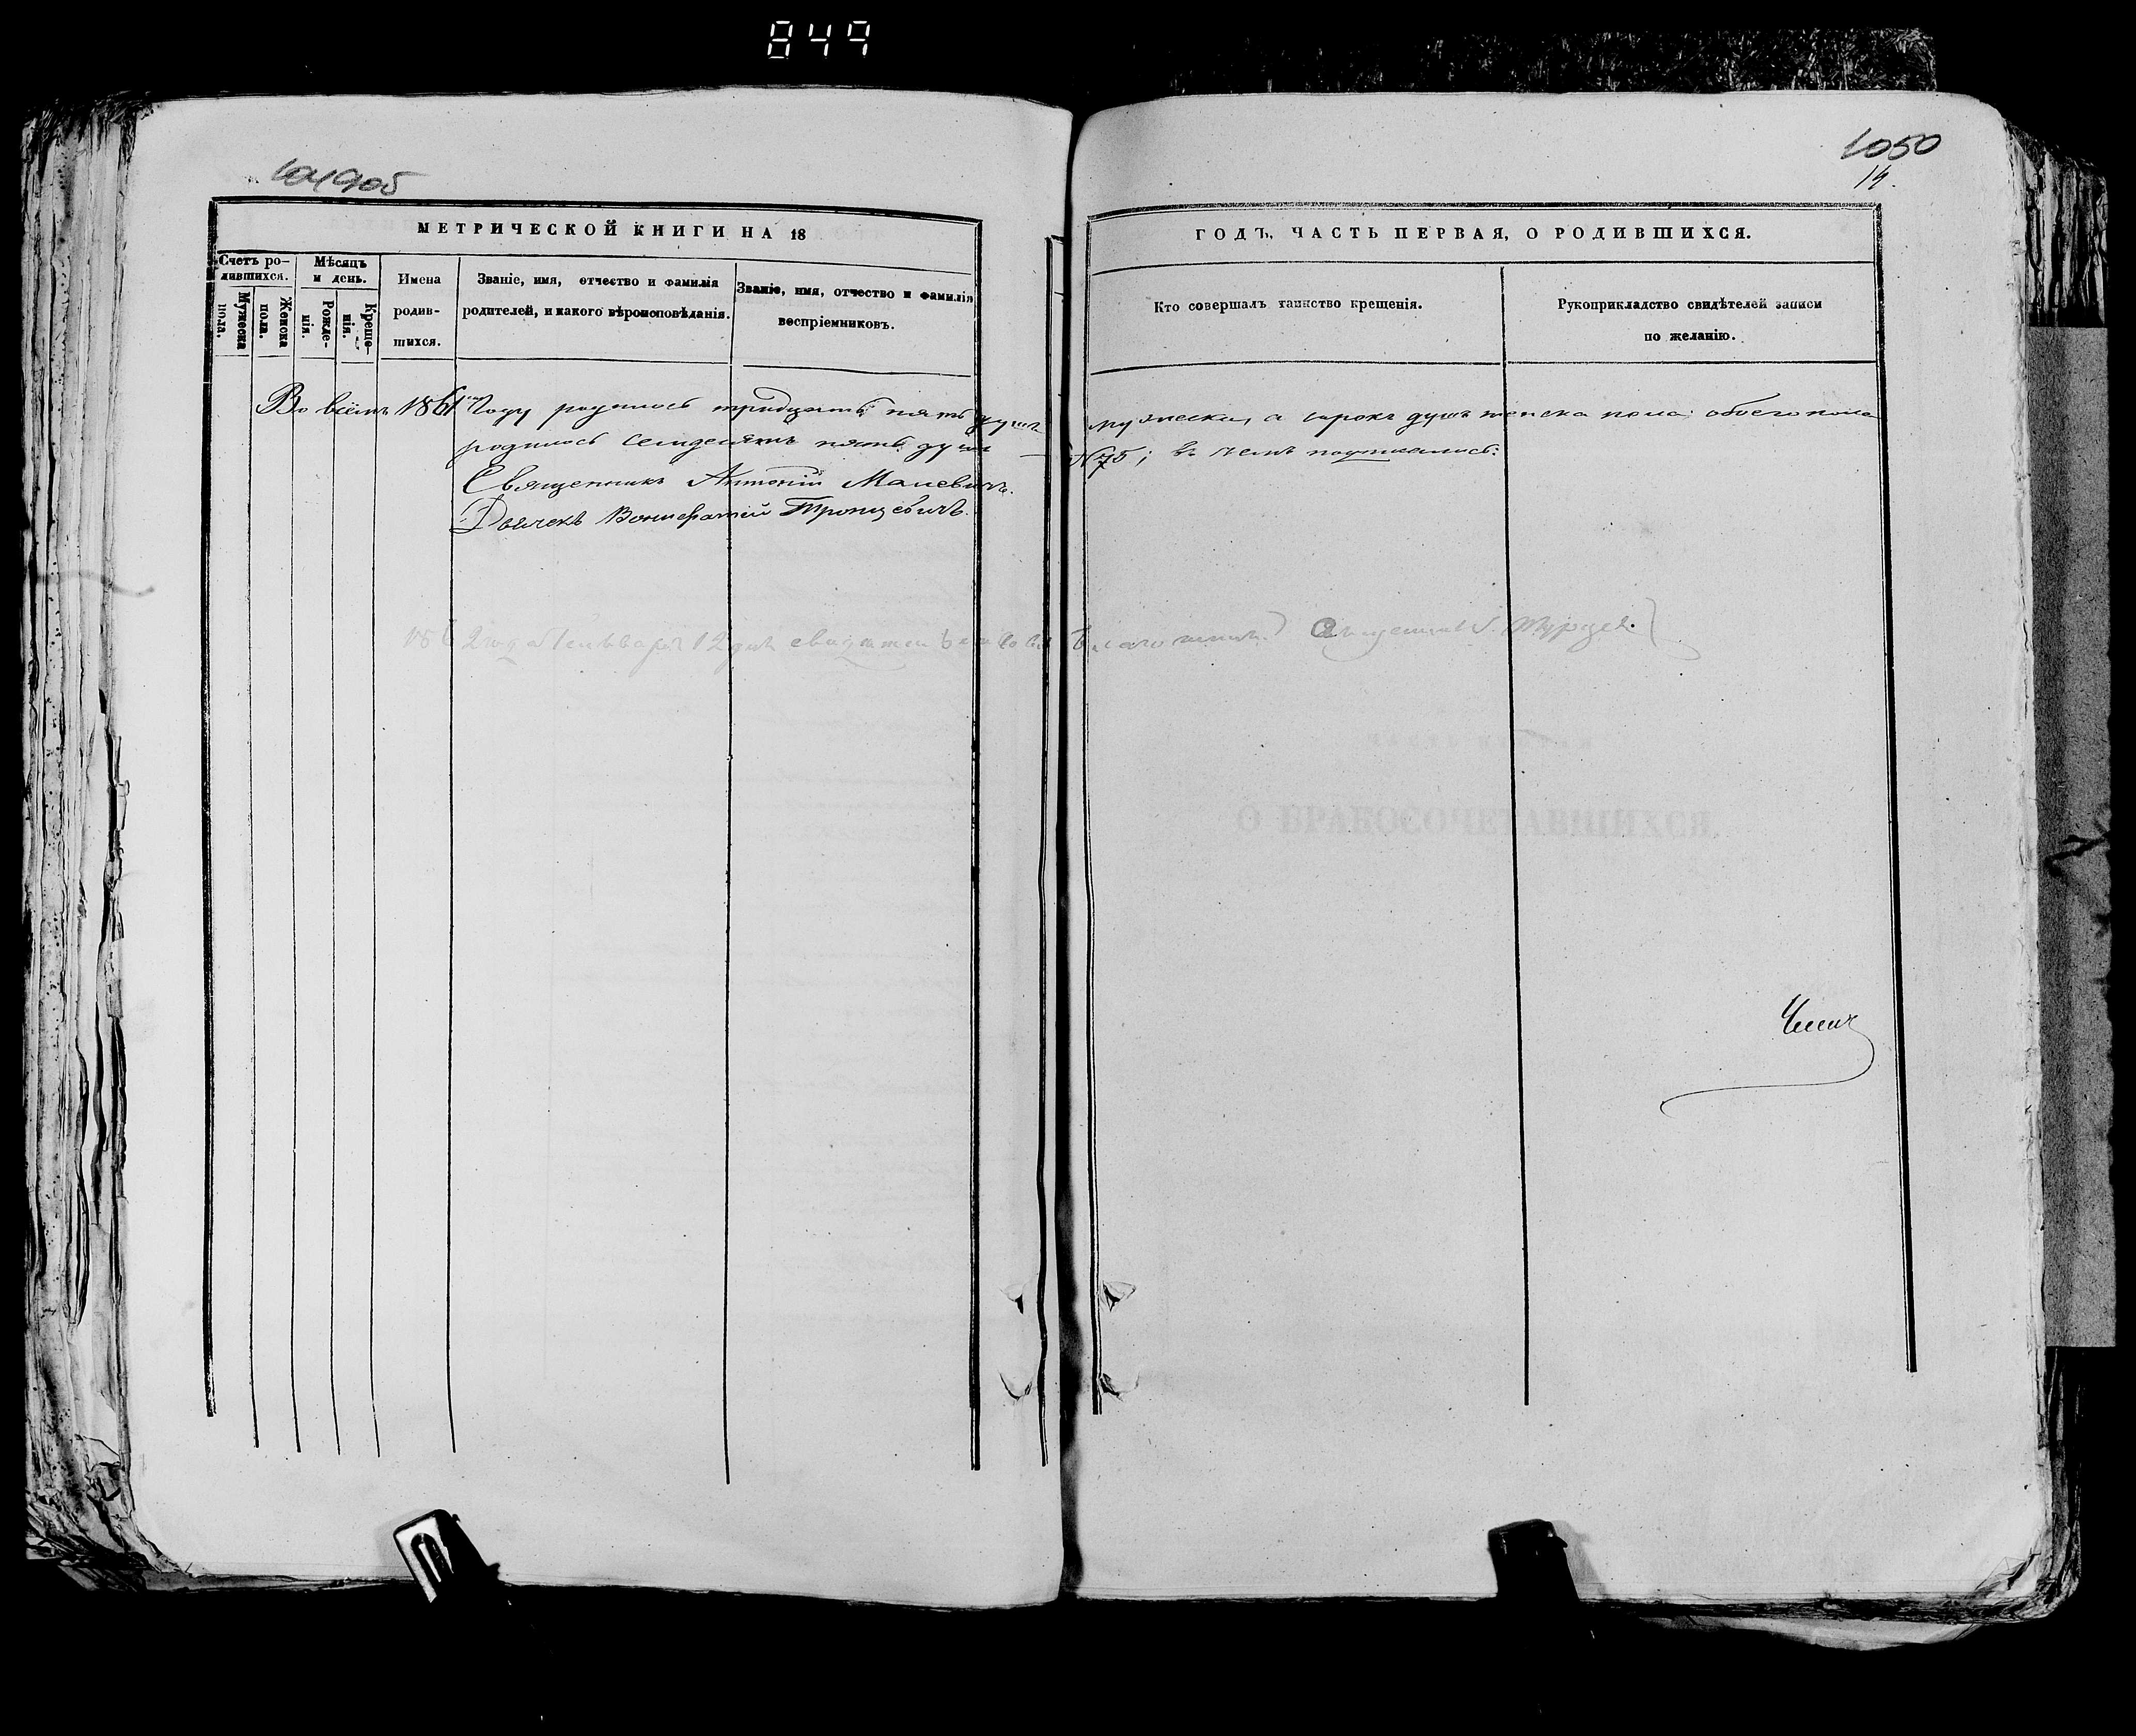 849
1050
14.
МЕТРИЧЕСКОЙ КНИГИ НА 18
ГОДЪ, ЧАСТЬ ПЕРВАЯ, О РОДИВШИХСЯ.
Счетъ ро-
дившихся.
Мужеска
пола.
Женска
пола.
Мѣсяцъ
и день.
Рожде-
нія.
Креще-
нія.
Имена
родив-
шихся.
Званіе, имя, отчество и фамилія
родителей, и какого вѣроисповѣданія.
Званіе, имя, отчество и фамилія
воспріемниковъ.
Кто совершалъ таинство крещенія.
Рукоприкладство свидѣтелей записи
по желанію.
Во всемъ 1861 Году родилось тридцать пять душъ мужеска, а сорокъ душъ женска пола; обоего пола
родилось семдесятъ пять душъ — № 75; въ чемъ подписались:
Священникъ Антоній Мацевичъ.
Дьячекъ Вонифатій Тронцевичъ.
1862 года Января 12 дня
О БРАКОСОЧЕТАВШИХСЯ.